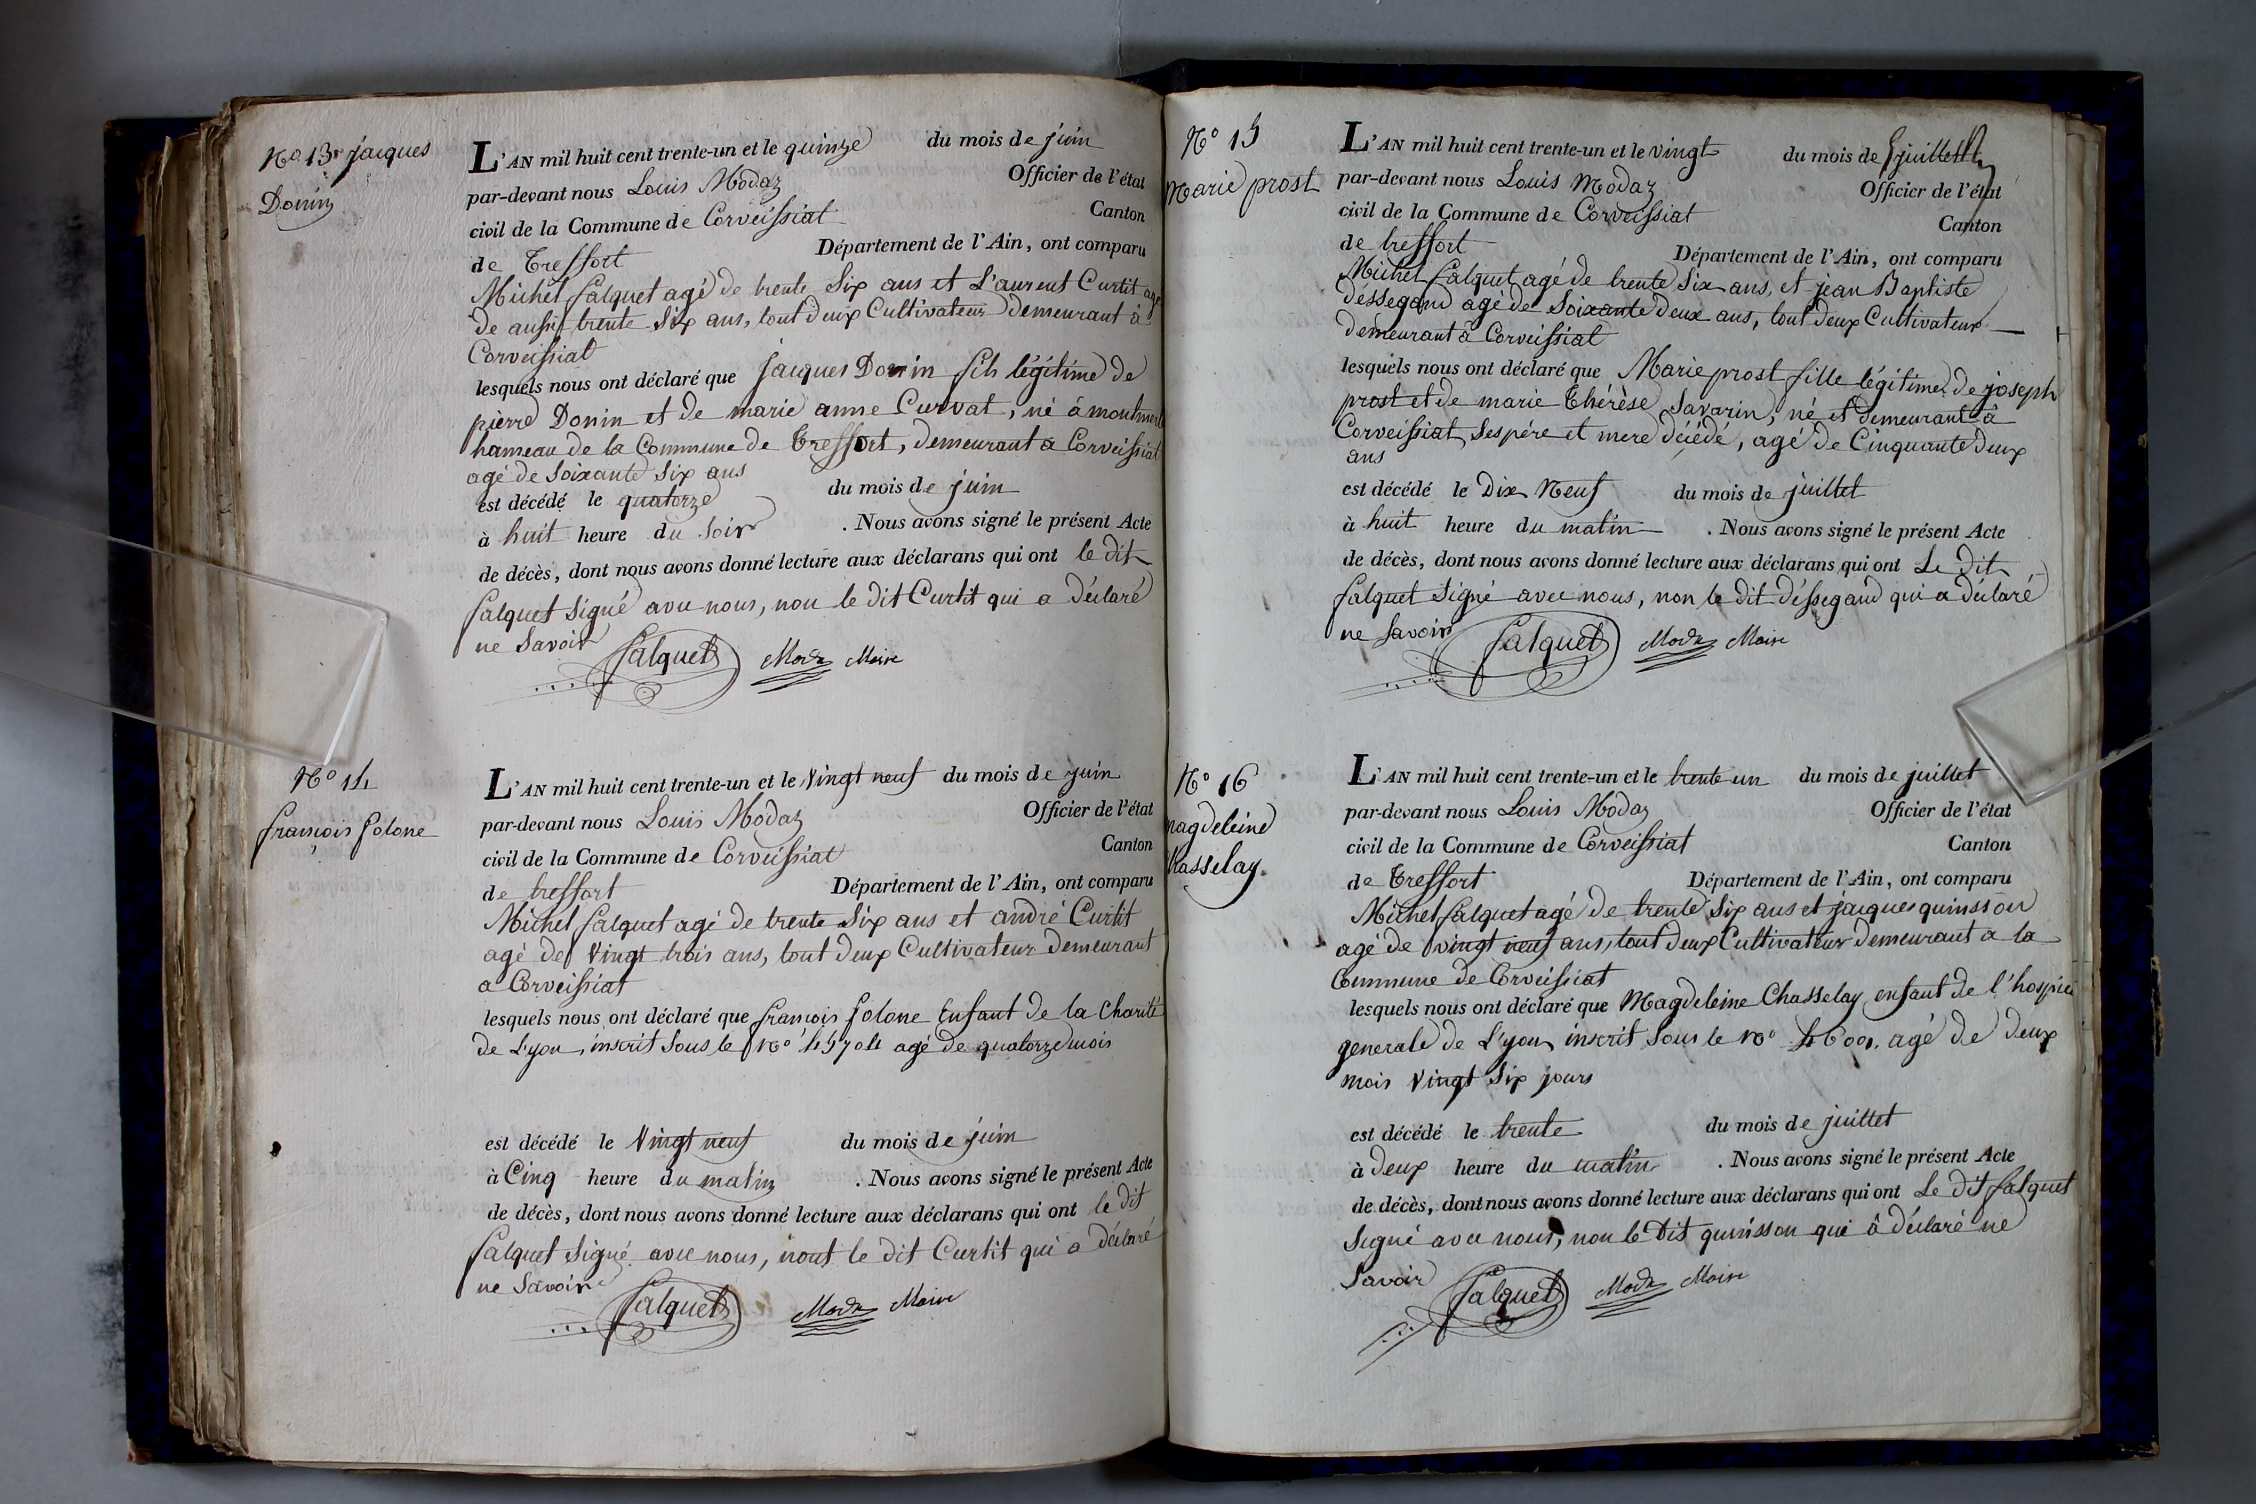 No 13 jacques
Donin
L'AN mil huit cent trente-un et le quinze du mois de juin
par-devant nous Louis Modaz Officier de l'état
civil de la Commune de Corveissiat Canton
de Treffort Département de l'Ain, ont comparu
Michel falquet agé de trente Six ans et L'aurent Curtit agé
de aussi trente Six ans, tout deux Cultivateur demeurant à
Corveissiat
lesquels nous ont déclaré que jacques Donin fils légitime de
pierre Donin et de marie anne Curvat, né à
hameau de la Commune de Treffort, demeurant a Corveissiat
agé de Soixante Six ans
est décédé le quatorze du mois de juin
à huit heure du Soir . Nous avons signé le présent Acte
de décès, dont nous avons donné lecture aux déclarans qui ont le dit
falquet Signé avec nous, non le dit Curtit qui a déclaré
ne Savoir falquet Modz Maire
No 14
françois folone
L'AN mil huit cent trente-un et le Vingt neuf du mois de juin
par-devant nous Louis Modaz Officier de l'état
civil de la Commune de Corveissiat Canton
de treffort Département de l'Ain, ont comparu
Michel falquet agé de trente Six ans et andré Curtit
agé de Vingt trois ans, tout deux Cultivateur demeurant
a Corveissiat
lesquels nous ont déclaré que françois folone Enfant de la Charité
de Lyon, inscrit Sous le No 45704 agé de quatorze mois
est décédé le Vingt neuf du mois de juin
à Cinq heure du matin . Nous avons signé le présent Acte
de décès, dont nous avons donné lecture aux déclarans qui ont le dit
falquet Signé avec nous, nont le dit Curtit qui a déclaré
ne Savoir falquet Modz Maire
No 15
Marie prost
L'AN mil huit cent trente-un et le vingt du mois de juillet
par-devant nous Louis Modaz Officier de l'état
civil de la Commune de Corveissiat Canton
de treffort Département de l'Ain, ont comparu
Michel falquet agé de trente Six ans, et jean Baptiste
déssegaud agé de Soixante Deux ans, tout deux Cultivateur
demeurant à Corveissiat
lesquels nous ont déclaré que Marie prost fille légitime de joseph
prost et de marie Thérèse Savarin, né et demeurant à
Corveissiat Ses père et mere décédé, agé de Cinquante deux
ans
est décédé le Dix Neuf du mois de juillet
à huit heure du matin . Nous avons signé le présent Acte
de décès, dont nous avons donné lecture aux déclarans qui ont Le dit
falquet Signé avec nous, non le dit déssegaud qui a déclaré
ne Savoir falquet Modz Maire
No 16
magdeleine
hasselay
L'AN mil huit cent trente-un et le trente un du mois de juillet
par-devant nous Louis Modaz Officier de l'état
civil de la Commune de Corveissiat Canton
de Treffort Département de l'Ain, ont comparu
Michel falquet agé de trente Six ans et jacques quinsson
agé de vingt neuf ans, tout deux Cultivateur demeurant a la
Commune de Corveissiat
lesquels nous ont déclaré que Magdeleine Chasselay enfant de l'hospice
generale de Lyon inscrit Sous le No agé de deux
mois Vingt Six jours
est décédé le trente du mois de juillet
à deux heure du matin . Nous avons signé le présent Acte
de décès, dont nous avons donné lecture aux déclarans qui ont Le dit falquet
Signé avec nous, non le Dit quinsson qui à déclaré ne
Savoir falquet Modz Maire